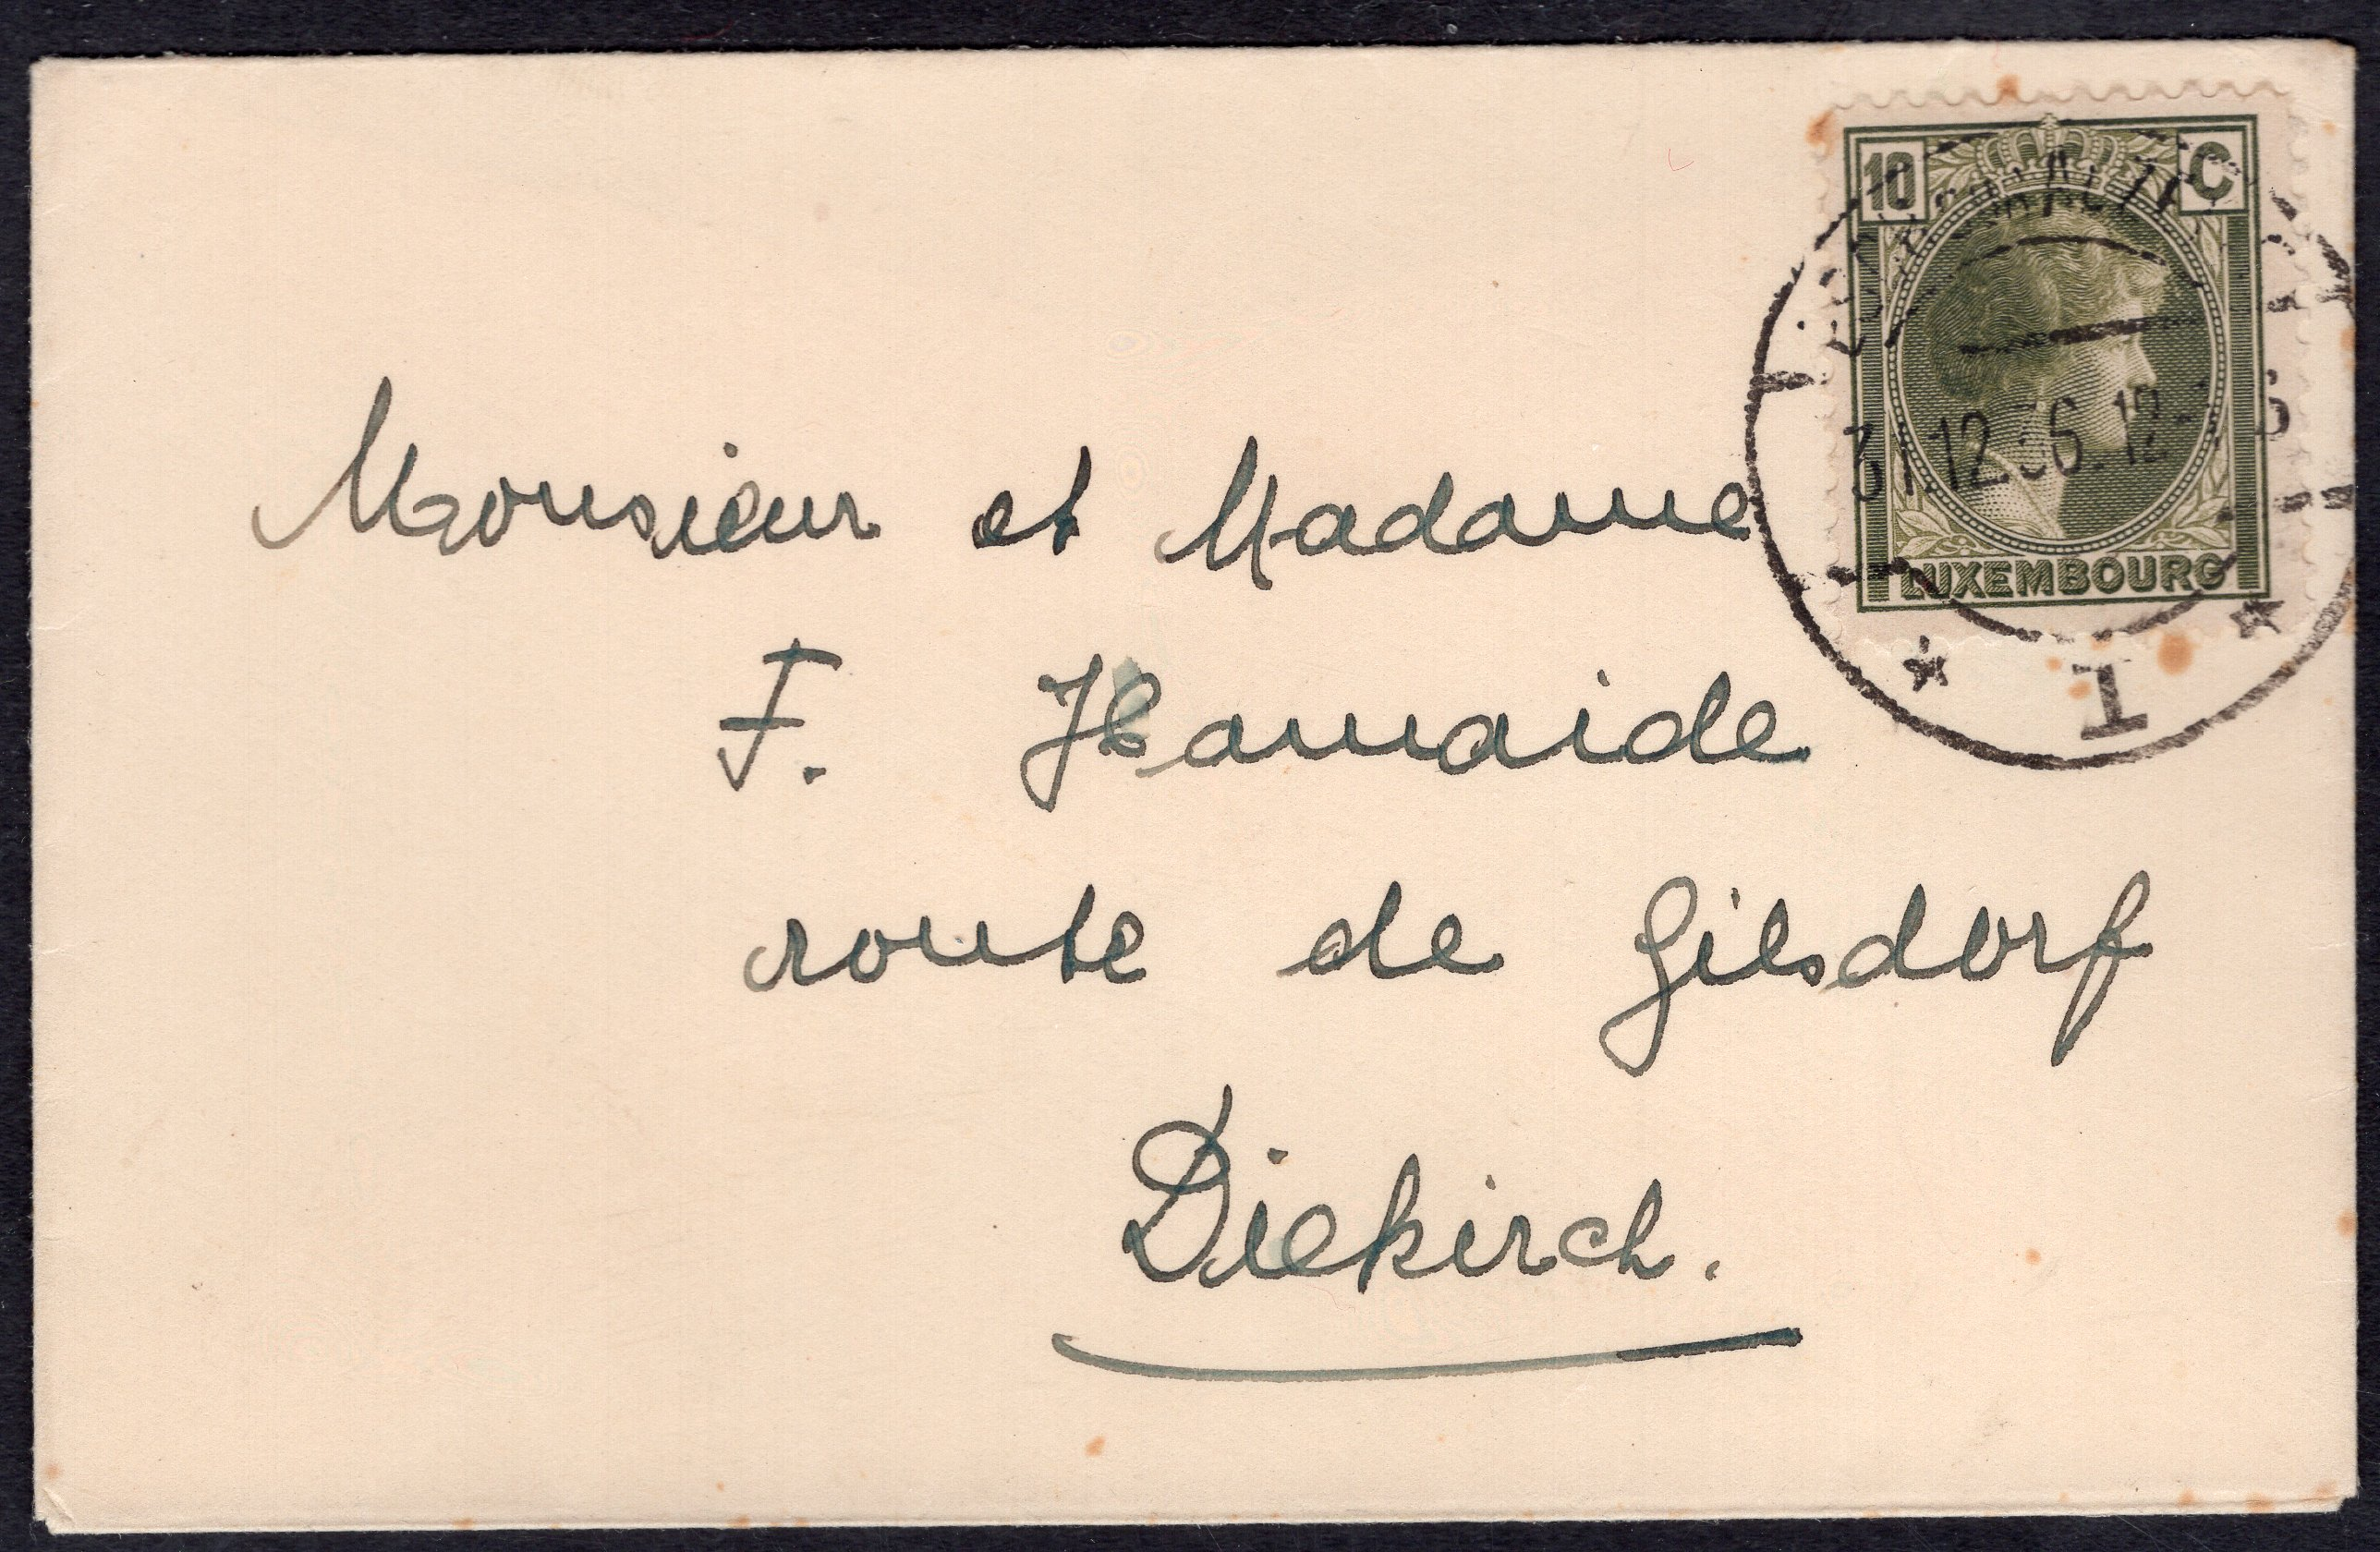 10 C
31.12.36.12-
LUXEMBOURG
1
Monsieur et Madame
F. Hamaide
route de Gilsdorf
Diekirch.